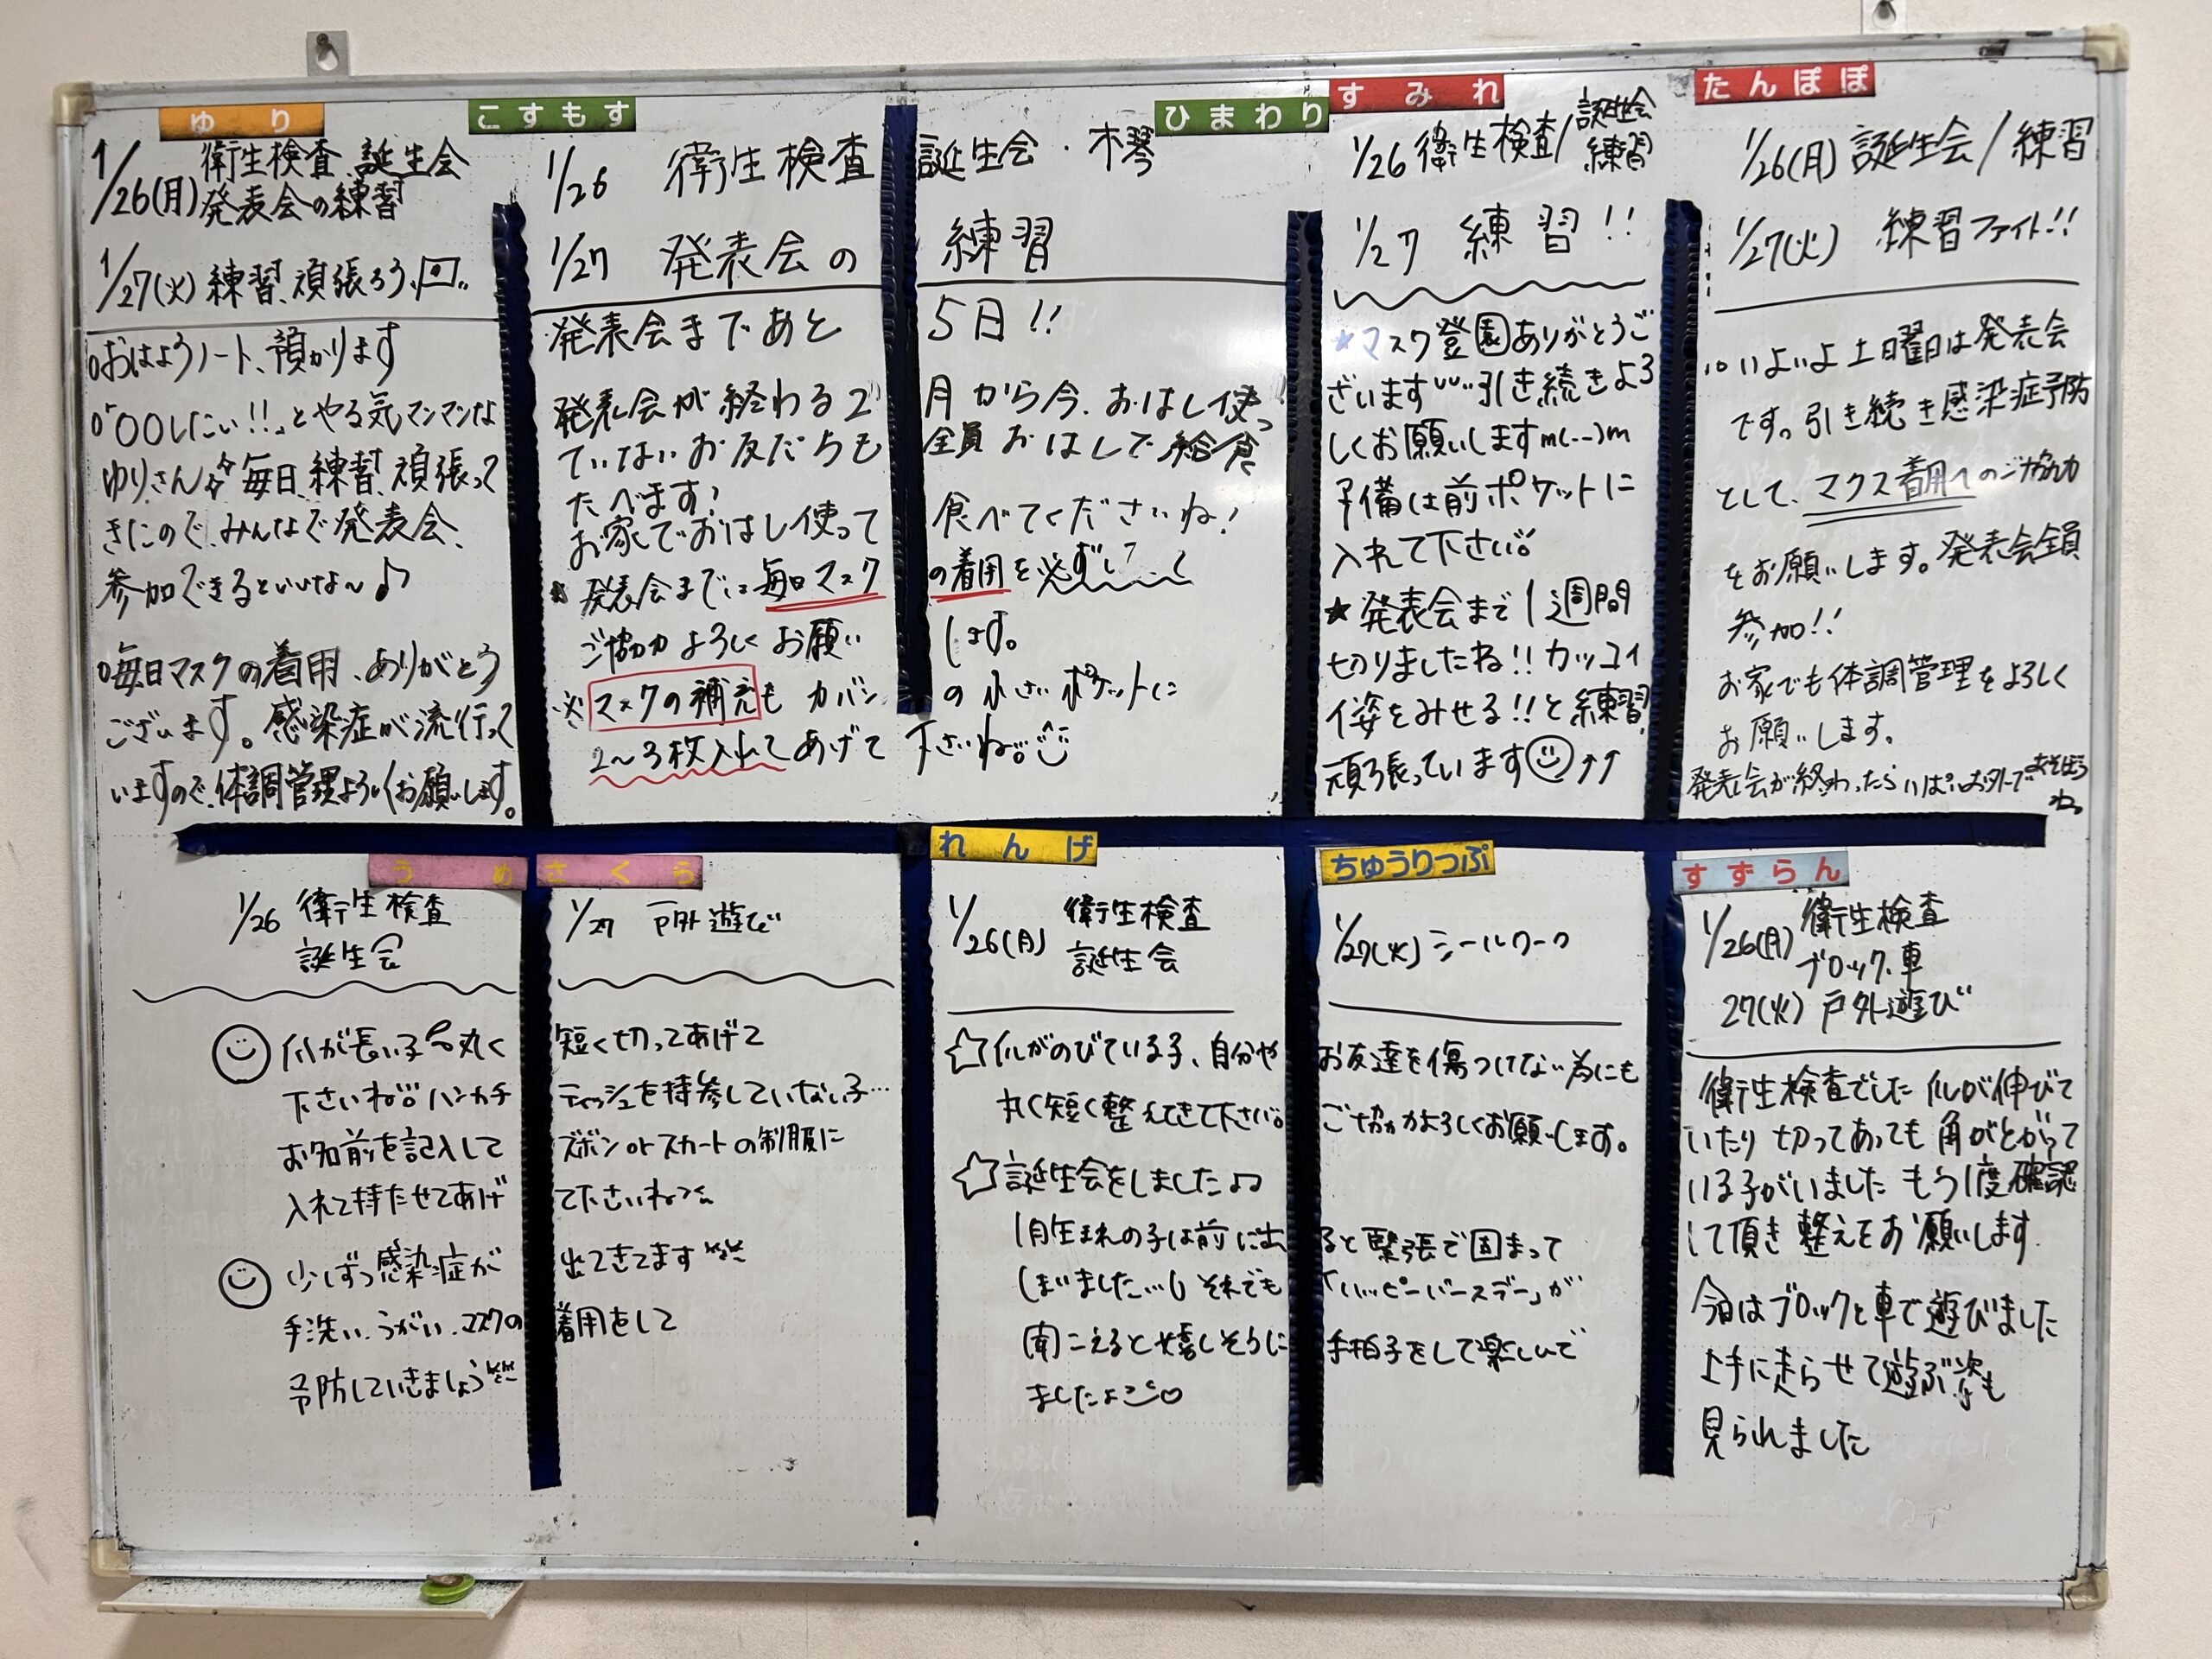 ゆり
1/26(月) 衛生検査、誕生会
発表会の練習
1/27(火) 練習、頑張ろう
おはようノート、預かります
「〇〇したい!!」とやる気マンマンな
ゆりさん☆毎日、練習、頑張って
きたので、みんなで発表会、
参加できるといいな〜♪
毎日マスクの着用、ありがとう
ございます。感染症が流行って
いますので、体調管理よろしくお願いします。
こすもす ひまわり
1/26 衛生検査 誕生会・木琴
1/27 発表会の 練習
発表会まであと 5日!!
発表会が終わる2 月から今、おはし使っ
ていないお友だちも 全員おはしで給食
たべます!
お家でおはし使って 食べてくださいね!
発表会までは毎日マスク の着用を必ずして
ご協力よろしくお願い します。
※マスクの補充も カバン の小さいポケットに
2〜3枚入れてあげて 下さいね。
すみれ
1/26 衛生検査/誕生会
練習
1/27 練習!!
★マスク登園ありがとうご
ざいます 引き続きよろ
しくお願いしますm(..)m
予備は前ポケットに
入れて下さい。
★発表会まで1週間
切りましたね!!カッコイ
イ姿をみせる!!と練習
頑張っています ↑↑
たんぽぽ
1/26(月) 誕生会/練習
1/27(火) 練習ファイト!!
いよいよ土曜日は発表会
です。引き続き感染症予防
として、マクス着用へのご協力
をお願いします。発表会全員
参加!!
お家でも体調管理をよろしく
お願いします。
発表会が終わったらいぱいお外であそぼう
ね。
うめ さくら
1/26 衛生検査 1/27 戸外遊び
誕生会
爪が長い子 丸く 短く切ってあげて
下さいね。ハンカチ ティッシュを持参していない子…
お名前を記入して ズボンorスカートの制服に
入れて持たせてあげ て下さいね
少しずつ感染症が 出てきてます
手洗い、うがい、マスクの 着用をして
予防していきましょう
れんげ ちゅうりっぷ
1/26(月) 衛生検査 1/27(火) シールワーク
誕生会
☆爪がのびている子、自分や お友達を傷つけない為にも
丸く短く整えてきて下さい。 ご協力よろしくお願いします。
☆誕生会をしました♪
1月生まれの子は前に出 ると緊張で固まって
しまいました… それでも 「ハッピーバースデー」が
聞こえると嬉しそうに 手拍子をして楽しんで
ましたよ♡
すずらん
1/26(月) 衛生検査
ブロック、車
27(火) 戸外遊び
衛生検査でした 爪が伸びて
いたり 切ってあっても 角がとがって
いる子がいました もう1度確認
して頂き 整えをお願いします
今日はブロックと車で遊びました
上手に走らせて遊ぶ姿も
見られました